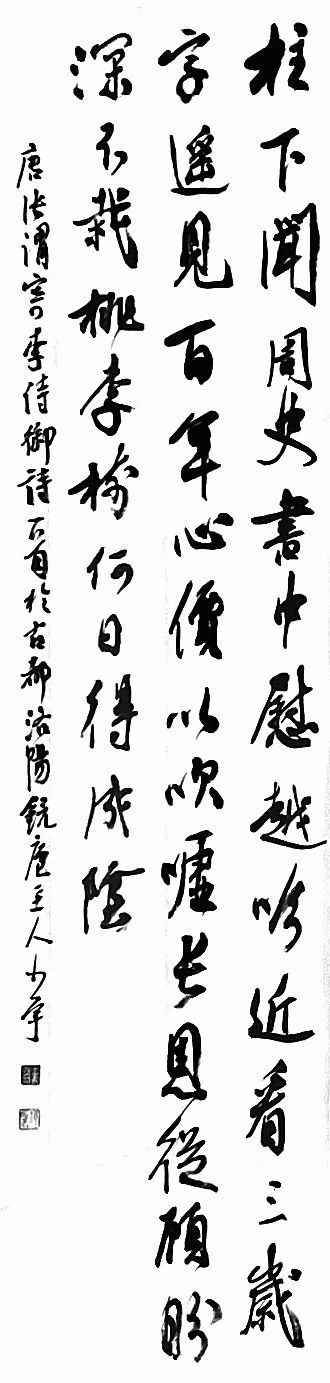 柱下聞周史書中慰越吟近看三歲
字遥見百年心價以吹噓長恩從顧盼
深不栽桃李樹何日得成陰
唐張謂寄李侍御詩一首於古都洛陽主人